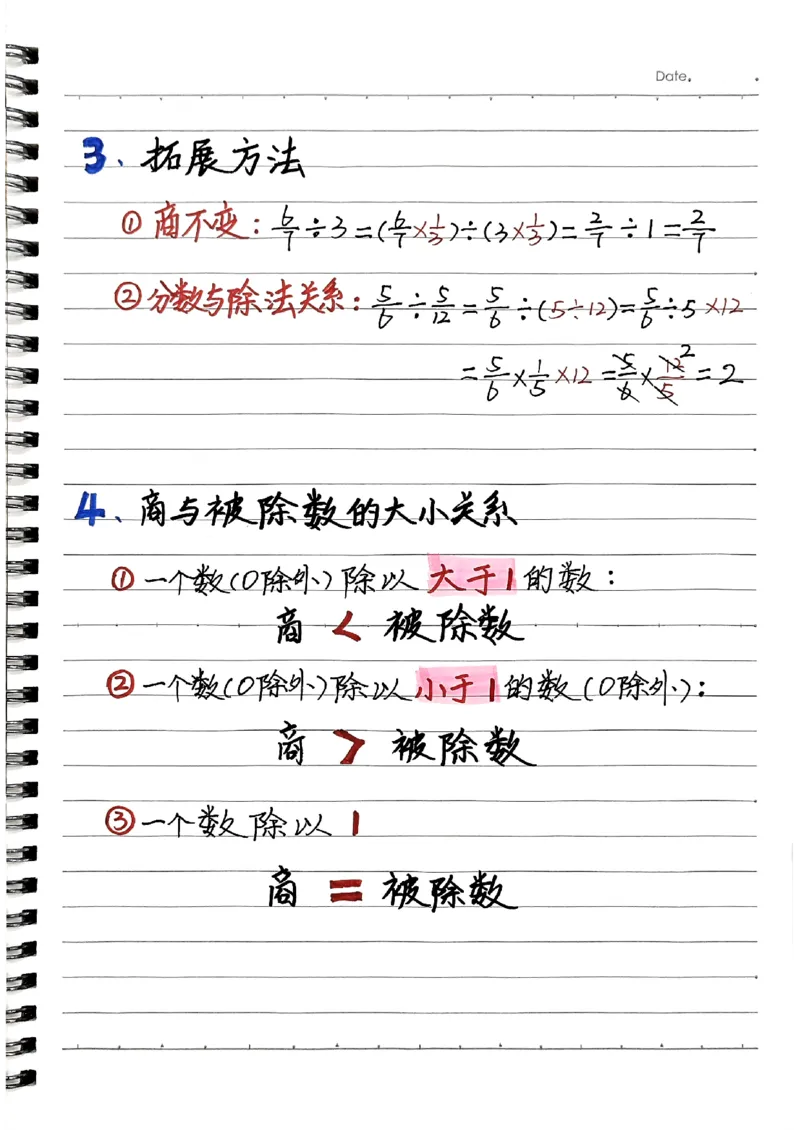 Date.
3、拓展方法
① 商不变：6/7÷3=(6/7×1/3)÷(3×1/3)=2/7÷1=2/7
② 分数与除法关系：5/6÷5/12=5/6÷(5÷12)=5/6÷5×12
=5/6×1/5×12=5/6×12/5 2=2
4、商与被除数的大小关系
① 一个数(0除外)除以大于1的数：
商 < 被除数
② 一个数(0除外)除以小于1的数(0除外)：
商 > 被除数
③ 一个数除以1
商 = 被除数